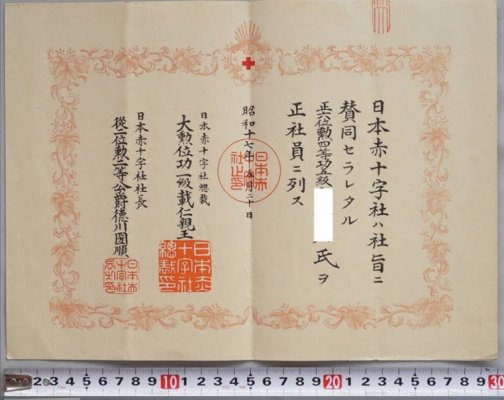 日本赤十字社ハ社旨ニ
賛同セラレタル
正六位勲四等功五級
氏ヲ
正社員ニ列ス
昭和十七年 月二十日
日本赤十字社總裁
大勲位功一級載仁親王
日本赤十字社社長
從一位勲一等公爵德川圀順
日本赤
社之印
日本赤
十字社
總裁印
日本赤
十字社
長之印
1 2 3 4 5 6 7 8 9 10 1 2 3 4 5 6 7 8 9 20 1 2 3 4 5 6 7 8 9 30